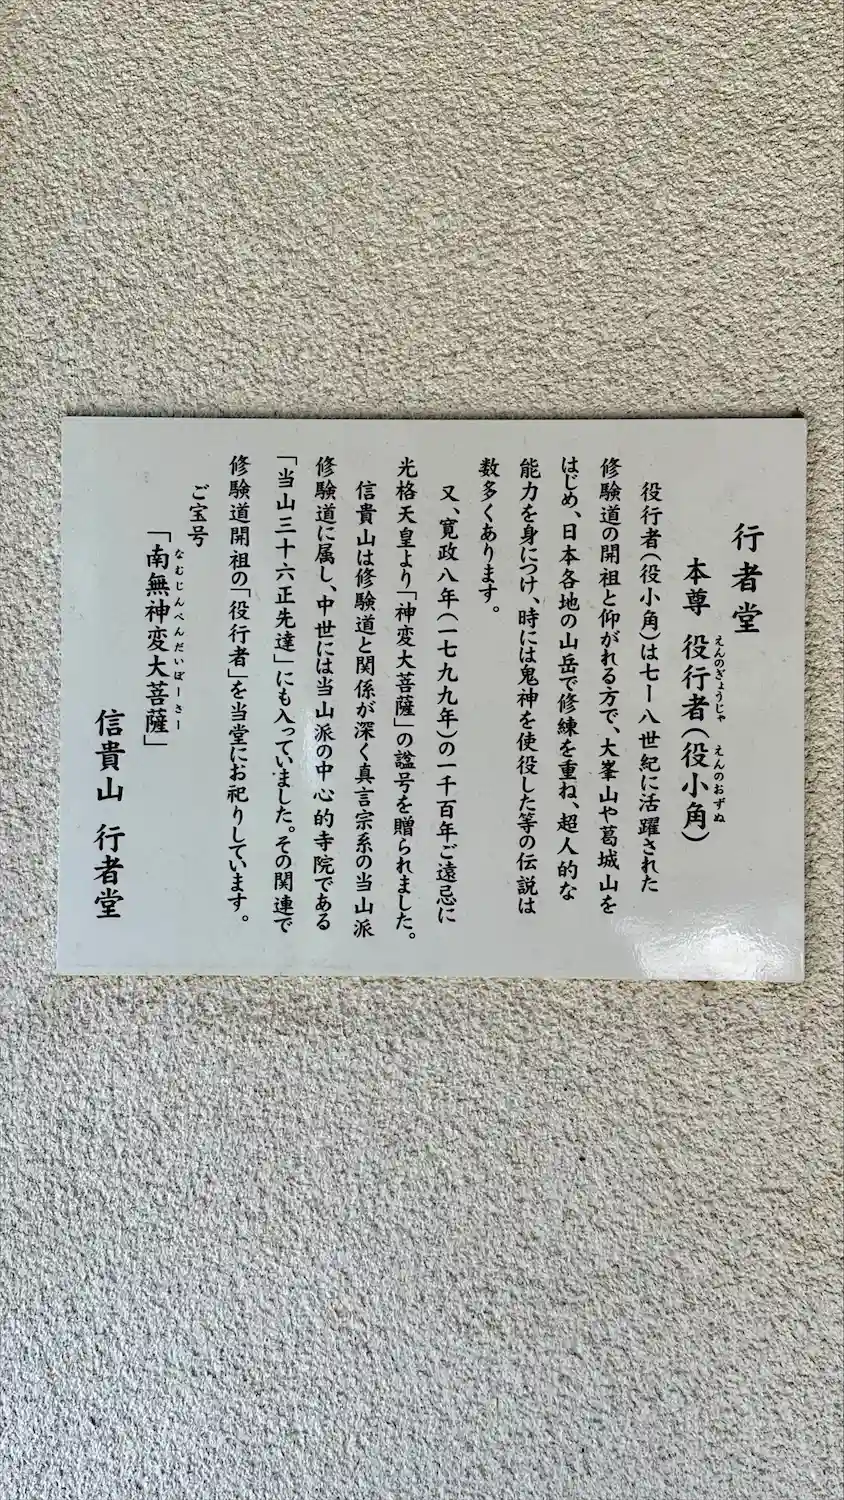 行者堂
本尊 役行者(役小角)
えんのぎょうじゃ えんのおずぬ
役行者(役小角)は七ー八世紀に活躍された
修験道の開祖と仰がれる方で、大峯山や葛城山を
はじめ、日本各地の山岳で修練を重ね、超人的な
能力を身につけ、時には鬼神を使役した等の伝説は
数多くあります。
又、寛政八年(一七九九年)の一千百年ご遠忌に
光格天皇より「神変大菩薩」の諡号を贈られました。
信貴山は修験道と関係が深く真言宗系の当山派
修験道に属し、中世には当山派の中心的寺院である
「当山三十六正先達」にも入っていました。その関連で
修験道開祖の「役行者」を当堂にお祀りしています。
ご宝号
「南無神変大菩薩」
なむじんぺんだいぼーさー
信貴山 行者堂